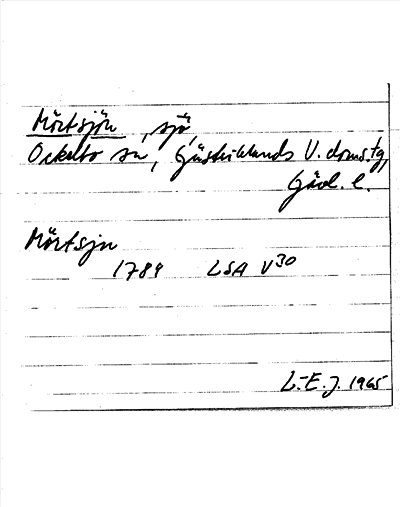 Mörtsjön, sjö,
Ockelbo sn, Gästriklands V. doms.tg,
Gävl. l.
Mörtsjn
1789 LSA V30
L-E.J. 1965